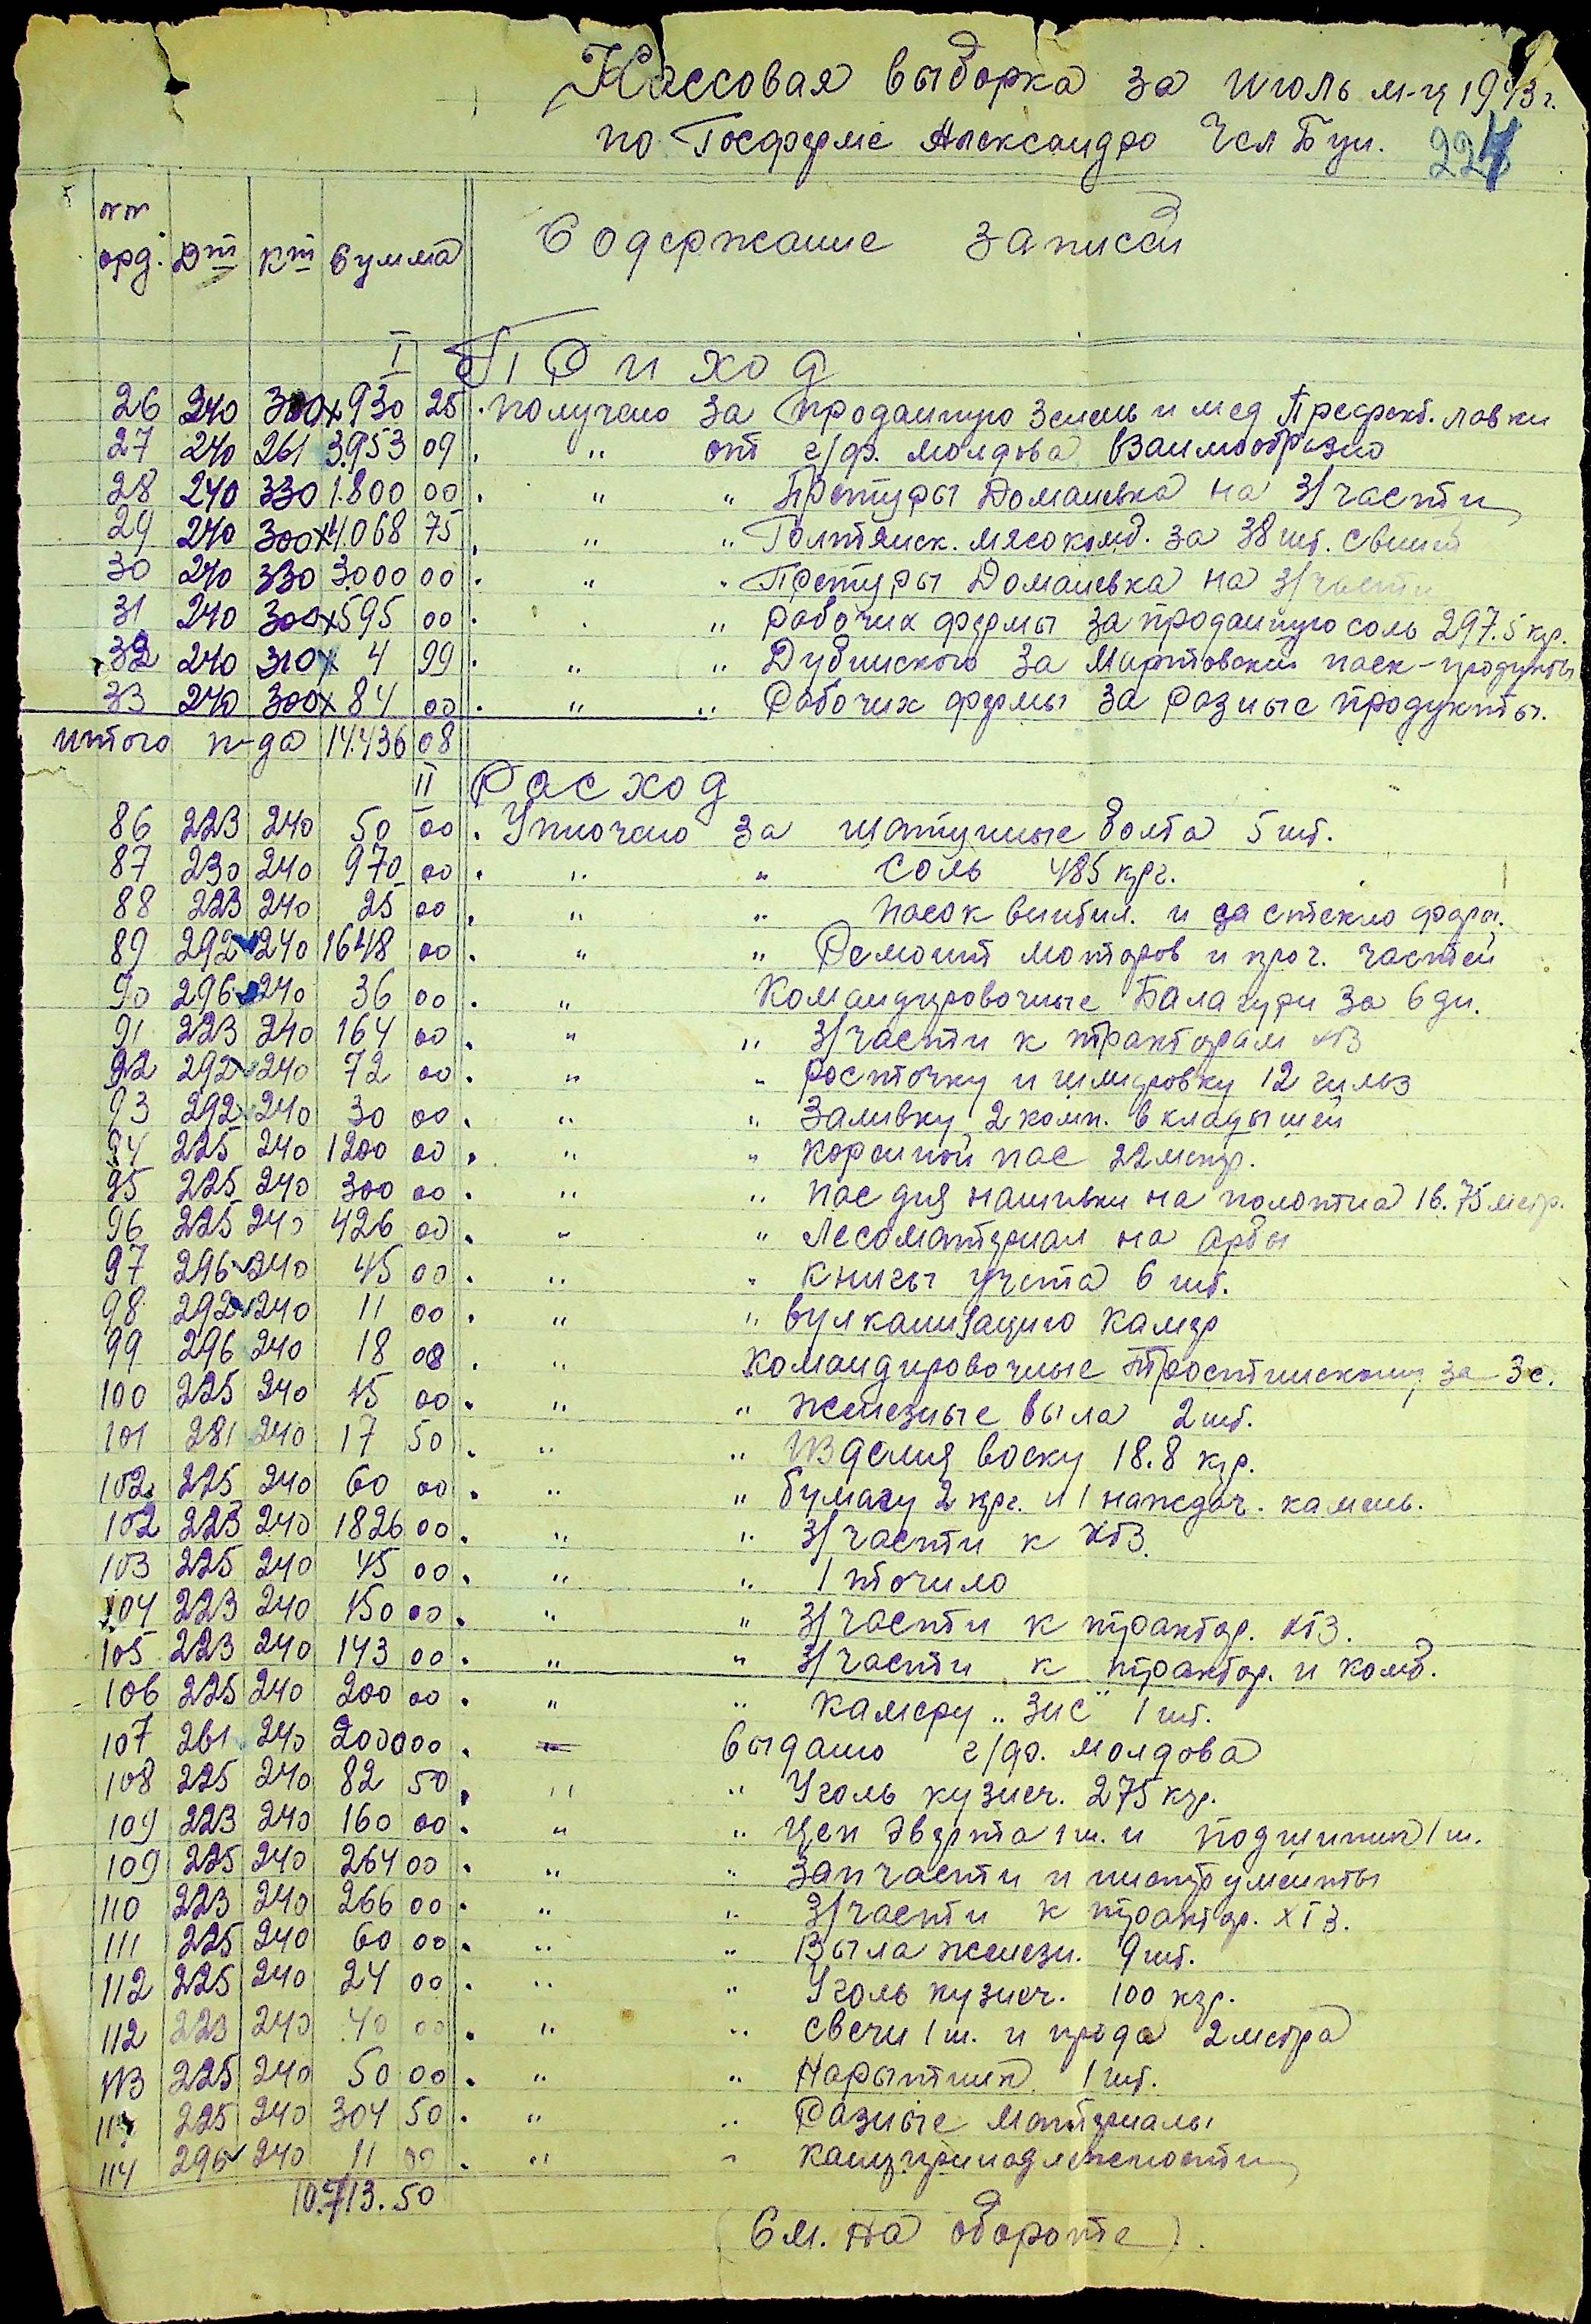 Кассовая выборка за июль м-ц 1943 г.
по Госферме Александро
224
№№ орд. Дт Кт Сумма Содержание записи
I Приход
26 240 300 х 930 25 . получено за проданную зелень и мед Префект. лавки
27 240 261 3.953 09 . " от г/ф. Молдова взаимообразно
28 240 330 1.800 00 . " " Претуры Доманевка на з/части
29 240 300 х 4.068 75 . " " Голтянск. мясокомб. за 38 шт. свиней
30 240 330 3.000 00 . " " Претуры Доманевка на з/части
31 240 300 х 595 00 . " " рабочих фермы за проданную соль 297.5 кгр.
32 240 310 х 4 99 . " " Дубинского за Мартовский паек-продукты
33 240 300 х 84 00 . " " Рабочих фермы за разные продукты.
итого п-да 14.436 08
II Расход
86 223 240 50 00 . Уплочено за шатунные болта 5 шт.
87 230 240 970 00 . " " соль 485 кгр.
88 223 240 25 00 . " " пасок вентил. и за стекло фары.
89 292 240 1648 00 . " " Ремонт моторов и проч. частей
90 296 240 36 00 . " Командировочные Балагури за 6 дн.
91 223 240 164 00 . " " З/части к тракторам ХТЗ
92 292 240 72 00 . " " расточку и шлифовку 12 гильз
93 292 240 30 00 . " " Заливку 2 комп. вкладышей
94 225 240 1200 00 . " " коренной пас 22 метр.
95 225 240 300 00 . " " пас для нашивки на полотна 16.75 метр.
96 225 240 426 00 . " " Лесоматериал на арбы
97 296 240 45 00 . " " книги учета 6 шт.
98 292 240 11 00 . " " вулканизацию камер
99 296 240 18 00 . " Командировочные за 3 с.
100 225 240 15 00 . " " железные выла 2 шт.
101 281 240 17 50 . " " Изделия воску 18.8 кгр.
102 225 240 60 00 . " " бумагу 2 кгр. и 1 наждач. камень.
102 223 240 1826 00 . " " З/части к ХТЗ.
103 225 240 45 00 . " " 1 точило
104 223 240 150 00 . " " З/части к трактор. ХТЗ.
105 223 240 143 00 . " " З/части к трактор. и комб.
106 225 240 200 00 . " " камеру "ЗИС" 1 шт.
107 261 240 2000 00 . Выдано г/ф. Молдова
108 225 240 82 50 . " " Уголь кузнеч. 275 кгр.
109 223 240 160 00 . " " Цеп Эверта 1 ш. и подшипник 1 ш.
109 225 240 264 00 . " " Запчасти и инструменты
110 223 240 266 00 . " " З/части к трактор. ХТЗ.
111 225 240 60 00 . " " Выла железн. 9 шт.
112 225 240 24 00 . " " Уголь кузнеч. 100 кгр.
112 223 240 40 00 . " " свечи 1 ш. и 2 метра
113 225 240 50 00 . " " Нарытник 1 шт.
225 240 304 50 . " " Разные материалы
114 296 240 11 00 . " " канцпринадлежности
10.713.50
(См. на обороте).